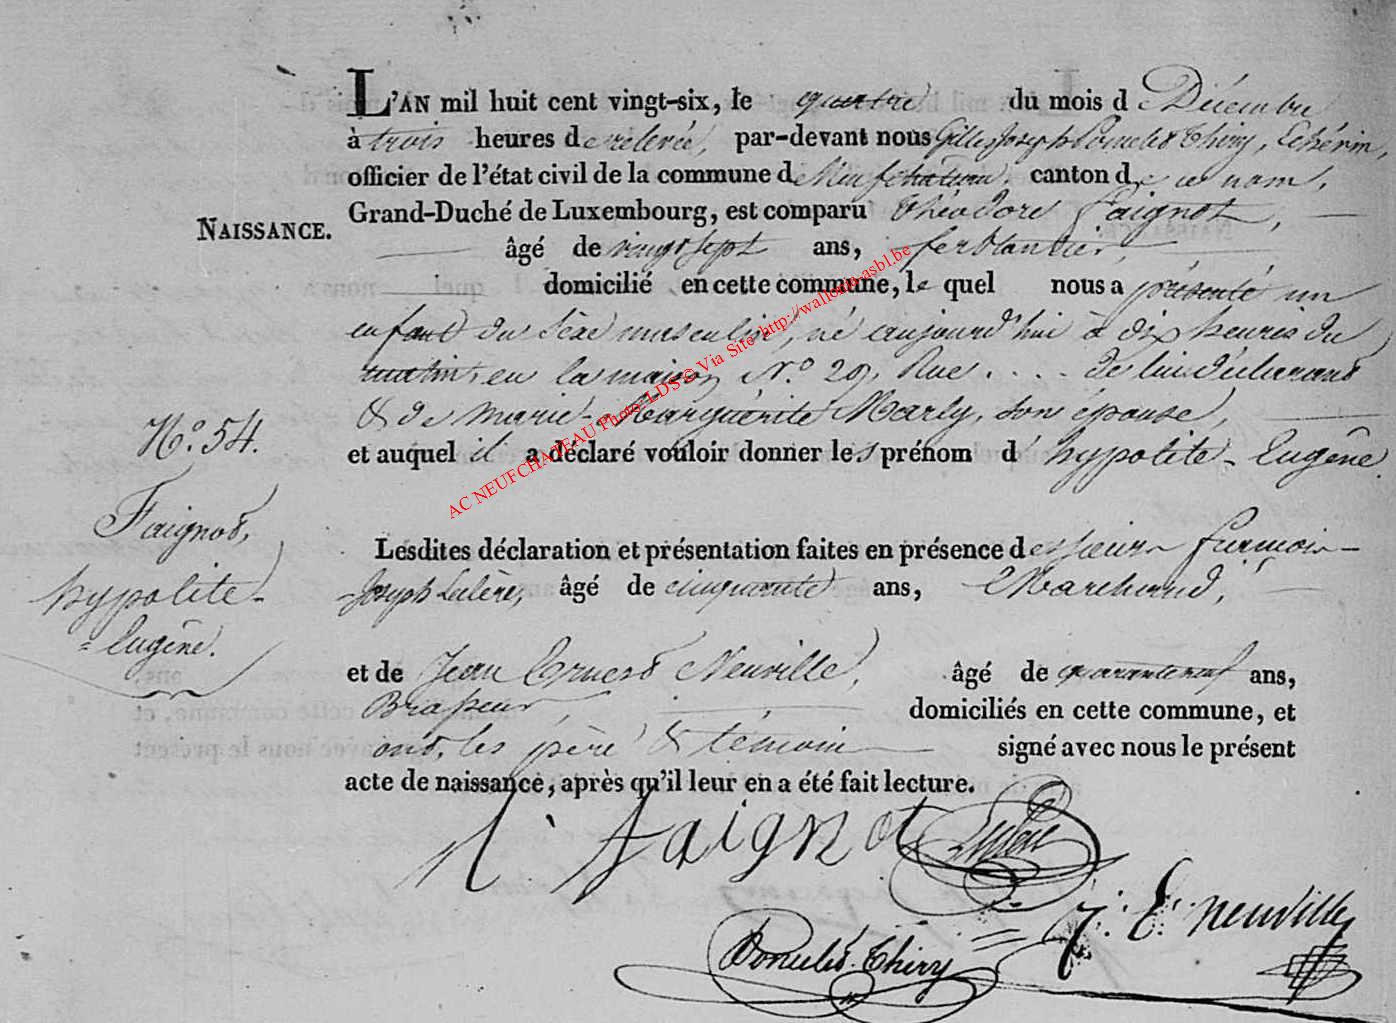 L'AN mil huit cent vingt-six, le quatre du mois de Décembre
à trois heures de relevée, par-devant nous Gilles Joseph Thiry, Echevin,
officier de l'état civil de la commune de Neufchateau, canton de ce nom,
Grand-Duché de Luxembourg, est comparu Théodore Faignot,
NAISSANCE.
âgé de vingt sept ans, ferblantier,
domicilié en cette commune, le quel nous a présenté un
enfant du sèxe masculin, né aujourd'hui à dix heures du
matin, en la maison N.o 29, Rue .... de lui déclarant
& de Marie-Marguérite Marly, son épouse,
N.o 54.
et auquel il a déclaré vouloir donner les prénom d'hypolite-Eugêne.
Faignot,
hypolite-
=Eugêne.
Lesdites déclaration et présentation faites en présence des sieurs François-
-Joseph Lelère, âgé de cinquante ans, Marchand,
et de Jean Ernest Neuville, âgé de quaranteneuf ans,
Brasseur, domiciliés en cette commune, et
ont, les père & témoins signé avec nous le présent
acte de naissance, après qu'il leur en a été fait lecture.
t. faignot
J. E. neuville
Thiry
AC NEUFCHATEAU Photo LDS © Via Site http://wallonia-asbl.be